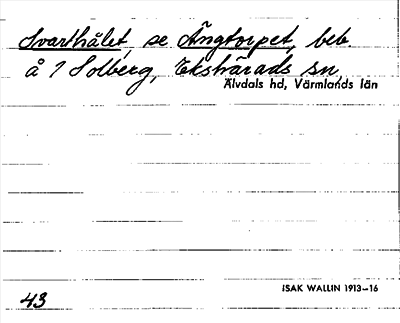 Svarthålet, se Ängtorpet, beb.
å 1 Solberg, Ekshärads sn,
Älvdals hd, Värmlands län
ISAK WALLIN 1913–16
43